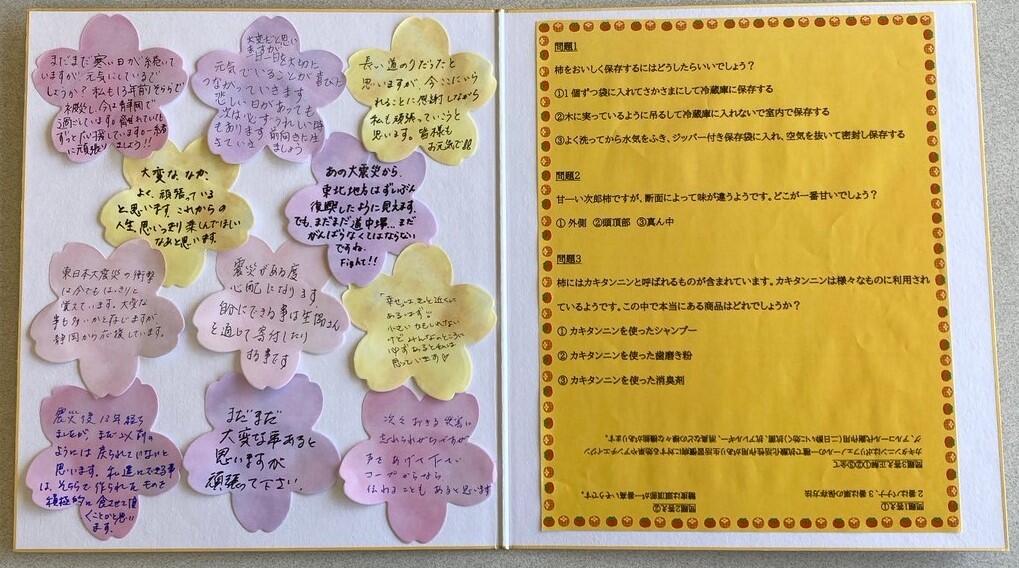 まだまだ寒い日が続いて
いますが元気にしているで
しょうか？私も13年前そちらで
被災し、今は静岡で
過ごしています。離れていても
ずっと応援しています。一緒
に頑張りましょう！！
大変だと思い
ますが、
一日一日を大切に
元気でいることが喜びと
つながっていきます
悲しい日があっても
次は必ずうれしい時
もあります 前向きに生
きていき ましょう
長い道のりだったと
思いますが、今ここにいら
れることに感謝しながら
私も頑張っていこうと
思います。皆様も
お元気で!!
大変な、なか、
よく、頑張っている
と思います。これからの
人生、思いっきり楽しんでほしい
なあと思います。
あの大震災から、
東北地方はずいぶん
復興したように見えます。
でも、まだまだ道中場…まだ
がんばらなくてはならない
ですね。
Fight!!
東日本大震災の衝撃
は今でもはっきりと
覚えています。大変な
事も多いかと存じますが、
静岡から応援しています。
震災がある度
心配になります
自分にできる事は生協さん
を通じて寄付したり
する事です
「幸せ」はきっと近くに
あるはず!!
小さいかもしれない
けど みんなのところに
必ずあると私は
思っています♡
震災後13年経ち
ましたが、まだ以前の
ようには戻られていないと
思います。私達にできる事
は、そちらで作られたものを
積極的に食させて頂
くことかと思い
ます。
まだまだ
大変な事あると
思いますが
頑張って下さい。
次々おきる災害に
忘れられがちですが
声をあげて下さい
コープからなら
伝わることも あると思います
問題1
柿をおいしく保存するにはどうしたらいいでしょう？
①1個ずつ袋に入れてさかさまにして冷蔵庫に保存する
②木に実っているように吊るして冷蔵庫に入れないで室内で保存する
③よく洗ってから水気をふき、ジッパー付き保存袋に入れ、空気を抜いて密封し保存する
問題2
甘ーい次郎柿ですが、断面によって味が違うようです。どこが一番甘いでしょう？
① 外側 ②頭頂部 ③真ん中
問題3
柿にはカキタンニンと呼ばれるものが含まれています。カキタンニンは様々なものに利用され
ているようです。この中で本当にある商品はどれでしょうか？
① カキタンニンを使ったシャンプー
② カキタンニンを使った歯磨き粉
③ カキタンニンを使った消臭剤
問題1答え①
2番はバナナ、3番は栗の保存方法
問題2答え②
糖度は頭頂部が一番高いそうです。
問題3答え正解①②③全て